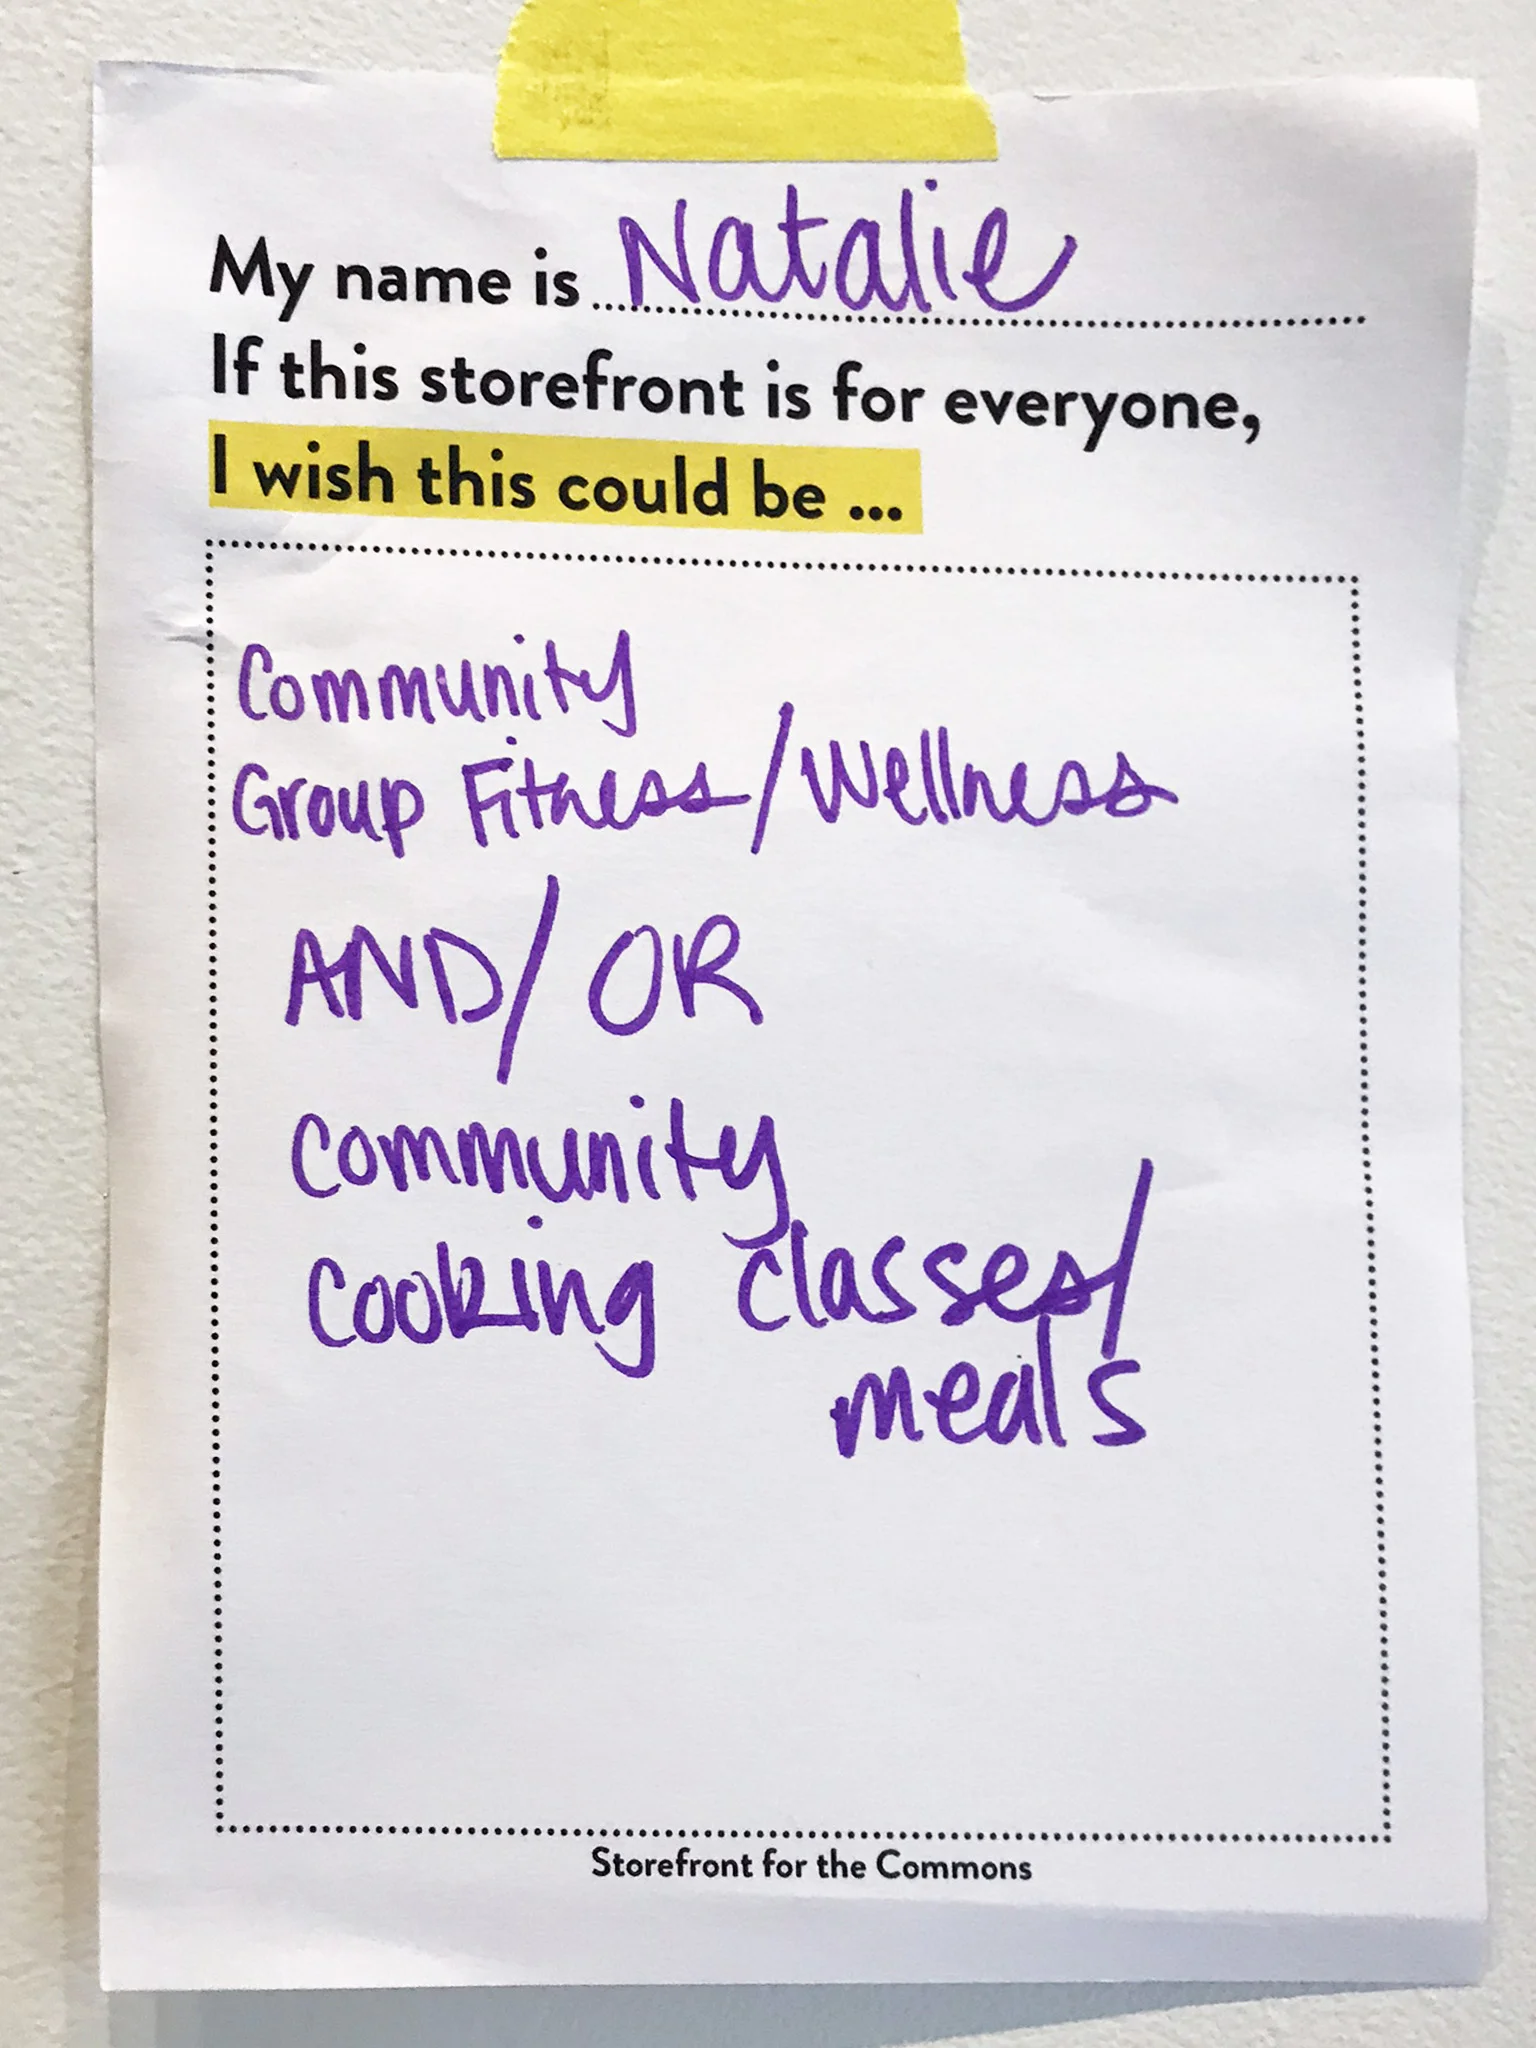 My name is Natalie
If this storefront is for everyone,
I wish this could be ...
Community
Group Fitness/Wellness
AND/OR
Community
Cooking classes/
meals
Storefront for the Commons